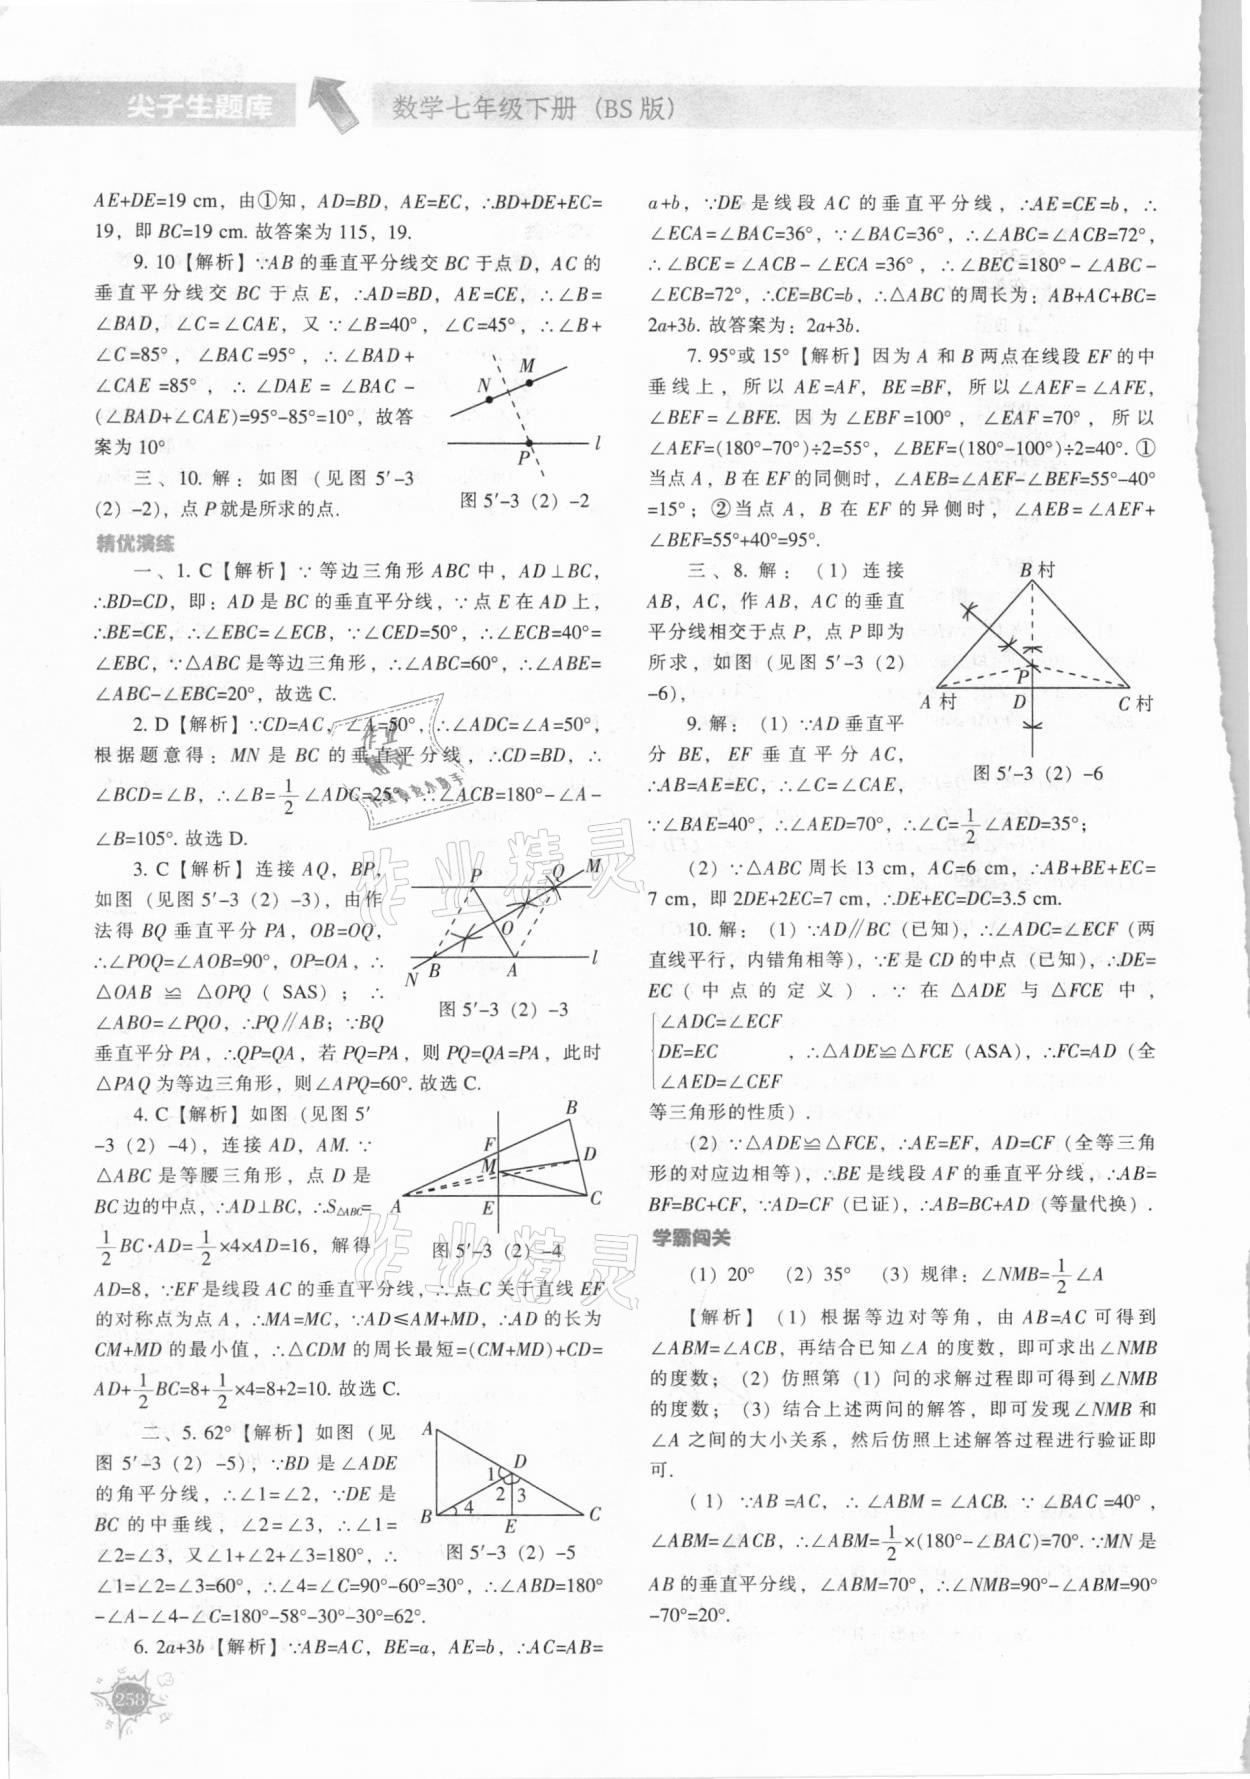 尖子生题库
数学七年级下册（BS版）
AE+DE=19 cm，由①知，AD=BD，AE=EC，∴BD+DE+EC=
19，即 BC=19 cm. 故答案为 115，19.
9. 10【解析】∵AB 的垂直平分线交 BC 于点 D，AC 的
垂直平分线交 BC 于点 E，∴AD=BD，AE=CE，∴∠B=
∠BAD，∠C=∠CAE，又∵∠B=40°，∠C=45°，∴∠B+
∠C=85°，∠BAC=95°，∴∠BAD+
∠CAE=85°，∴∠DAE=∠BAC-
(∠BAD+∠CAE)=95°-85°=10°，故答
案为 10°
N M P l
图 5′-3（2）-2
三、10. 解：如图（见图 5′-3
（2）-2），点 P 就是所求的点.
精优演练
一、1. C【解析】∵等边三角形 ABC 中，AD⊥BC，
∴BD=CD，即：AD 是 BC 的垂直平分线，∵点 E 在 AD 上，
∴BE=CE，∴∠EBC=∠ECB，∵∠CED=50°，∴∠ECB=40°=
∠EBC，∵△ABC 是等边三角形，∴∠ABC=60°，∴∠ABE=
∠ABC-∠EBC=20°，故选 C.
2. D【解析】∵CD=AC，∠A=50°，∴∠ADC=∠A=50°，
根据题意得：MN 是 BC 的垂直平分线，∴CD=BD，∴
∠BCD=∠B，∴∠B=1/2∠ADC=25°，∴∠ACB=180°-∠A-
∠B=105°. 故选 D.
3. C【解析】连接 AQ，BP，
如图（见图 5′-3（2）-3），由作
法得 BQ 垂直平分 PA，OB=OQ，
∴∠POQ=∠AOB=90°，OP=OA，∴
△OAB≌△OPQ（SAS）；∴
∠ABO=∠PQO，∴PQ∥AB；∵BQ
P Q M O N B A l
图 5′-3（2）-3
垂直平分 PA，∴QP=QA，若 PQ=PA，则 PQ=QA=PA，此时
△PAQ 为等边三角形，则∠APQ=60°. 故选 C.
4. C【解析】如图（见图 5′
-3（2）-4），连接 AD，AM. ∵
△ABC 是等腰三角形，点 D 是
BC 边的中点，∴AD⊥BC，∴S△ABC=
1/2 BC·AD=1/2×4×AD=16，解得
B F D M A E C
图 5′-3（2）-4
AD=8，∵EF 是线段 AC 的垂直平分线，∴点 C 关于直线 EF
的对称点为点 A，∴MA=MC，∵AD≤AM+MD，∴AD 的长为
CM+MD 的最小值，∴△CDM 的周长最短=(CM+MD)+CD=
AD+1/2 BC=8+1/2×4=8+2=10. 故选 C.
二、5. 62°【解析】如图（见
图 5′-3（2）-5），∵BD 是∠ADE
的角平分线，∴∠1=∠2，∵DE 是
BC 的中垂线，∠2=∠3，∴∠1=
∠2=∠3，又∠1+∠2+∠3=180°，∴
A D 1 2 3 4 B E C
图 5′-3（2）-5
∠1=∠2=∠3=60°，∴∠4=∠C=90°-60°=30°，∴∠ABD=180°
-∠A-∠4-∠C=180°-58°-30°-30°=62°.
6. 2a+3b【解析】∵AB=AC，BE=a，AE=b，∴AC=AB=
258
a+b，∵DE 是线段 AC 的垂直平分线，∴AE=CE=b，∴
∠ECA=∠BAC=36°，∵∠BAC=36°，∴∠ABC=∠ACB=72°，
∴∠BCE=∠ACB-∠ECA=36°，∴∠BEC=180°-∠ABC-
∠ECB=72°，∴CE=BC=b，∴△ABC 的周长为：AB+AC+BC=
2a+3b. 故答案为：2a+3b.
7. 95°或 15°【解析】因为 A 和 B 两点在线段 EF 的中
垂线上，所以 AE=AF，BE=BF，所以∠AEF=∠AFE，
∠BEF=∠BFE. 因为∠EBF=100°，∠EAF=70°，所以
∠AEF=(180°-70°)÷2=55°，∠BEF=(180°-100°)÷2=40°. ①
当点 A，B 在 EF 的同侧时，∠AEB=∠AEF-∠BEF=55°-40°
=15°；②当点 A，B 在 EF 的异侧时，∠AEB=∠AEF+
∠BEF=55°+40°=95°.
三、8. 解：（1）连接
AB，AC，作 AB，AC 的垂直
平分线相交于点 P，点 P 即为
所求，如图（见图 5′-3（2）
-6），
B 村 P A 村 D C 村
图 5′-3（2）-6
9. 解：（1）∵AD 垂直平
分 BE，EF 垂直平分 AC，
∴AB=AE=EC，∴∠C=∠CAE，
∵∠BAE=40°，∴∠AED=70°，∴∠C=1/2∠AED=35°；
（2）∵△ABC 周长 13 cm，AC=6 cm，∴AB+BE+EC=
7 cm，即 2DE+2EC=7 cm，∴DE+EC=DC=3.5 cm.
10. 解：（1）∵AD∥BC（已知），∴∠ADC=∠ECF（两
直线平行，内错角相等），∵E 是 CD 的中点（已知），∴DE=
EC（中点的定义）. ∵在△ADE 与△FCE 中，
∠ADC=∠ECF
DE=EC ，∴△ADE≌△FCE（ASA），∴FC=AD（全
∠AED=∠CEF
等三角形的性质）.
（2）∵△ADE≌△FCE，∴AE=EF，AD=CF（全等三角
形的对应边相等），∴BE 是线段 AF 的垂直平分线，∴AB=
BF=BC+CF，∵AD=CF（已证），∴AB=BC+AD（等量代换）.
学霸闯关
（1）20° （2）35° （3）规律：∠NMB=1/2∠A
【解析】（1）根据等边对等角，由 AB=AC 可得到
∠ABM=∠ACB，再结合已知∠A 的度数，即可求出∠NMB
的度数；（2）仿照第（1）问的求解过程即可得到∠NMB
的度数；（3）结合上述两问的解答，即可发现∠NMB 和
∠A 之间的大小关系，然后仿照上述解答过程进行验证即
可.
（1）∵AB=AC，∴∠ABM=∠ACB. ∵∠BAC=40°，
∠ABM=∠ACB，∴∠ABM=1/2×(180°-∠BAC)=70°. ∵MN 是
AB 的垂直平分线，∠ABM=70°，∴∠NMB=90°-∠ABM=90°
-70°=20°.
作业精灵
作业精灵